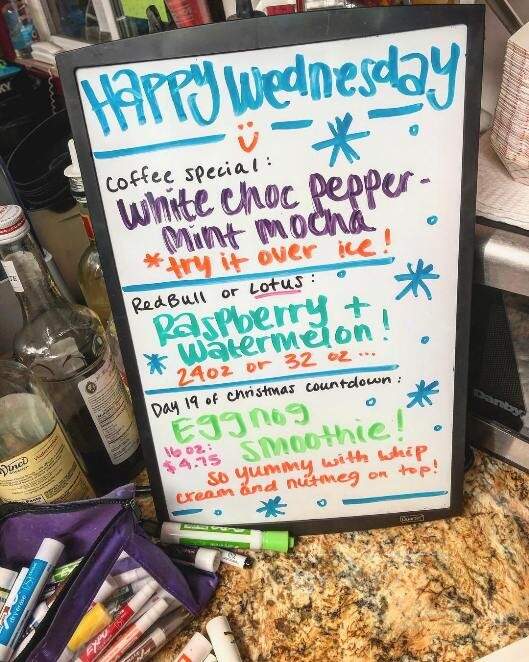 Happy Wednesday
Coffee special:
White choc pepper-
mint mocha
*try it over ice!
RedBull or Lotus:
Raspberry +
watermelon!
24oz or 32 oz ...
Day 19 of christmas countdown:
Eggnog
smoothie!
16 oz:
$4.75
so yummy with whip
cream and nutmeg on top!
Quartet
Danby
EXPO